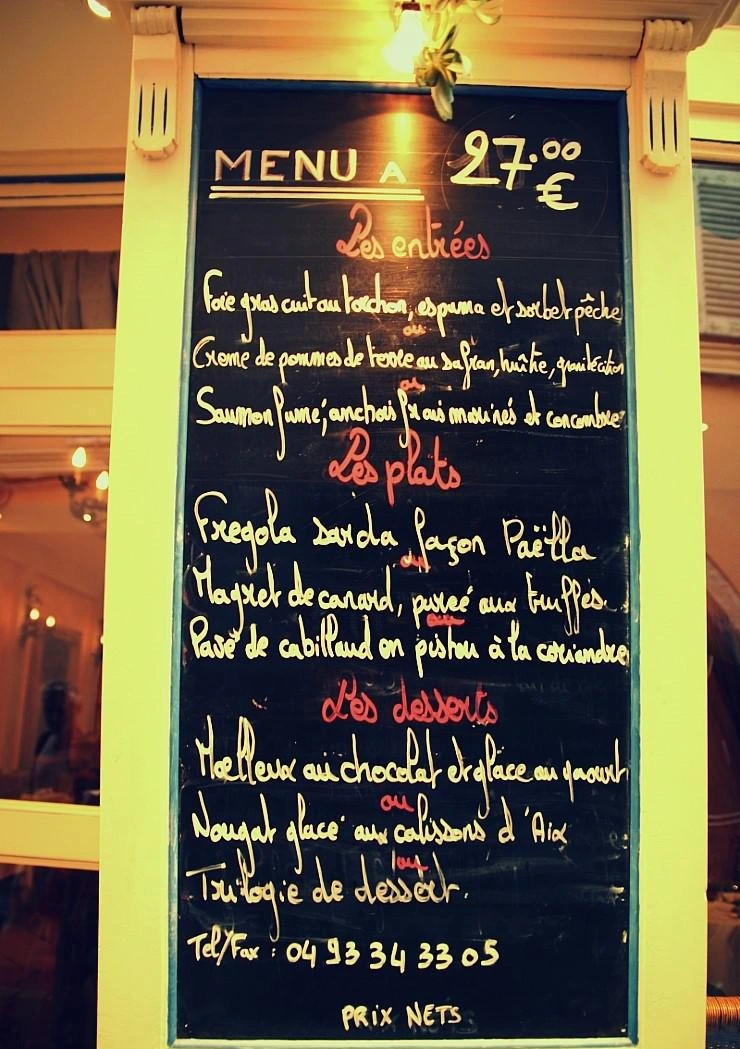 MENU A 27.00 €
Les entrées
Foie gras cuit au torchon, espuma et sorbet pêche
ou
Creme de pommes de terre au safran, huître, granité citron
ou
Saumon fumé, anchois frais marinés et concombre
Les plats
Fregola sarda façon Paëlla
ou
Magret de canard, pureé aux truffes
ou
Pavé de cabillaud en pistou à la coriandre
Les desserts
Moelleux au chocolat et glace au yaourt
ou
Nougat glacé aux calissons d'Aix
ou
Trilogie de dessert.
Tel/Fax : 04 93 34 33 05
PRIX NETS